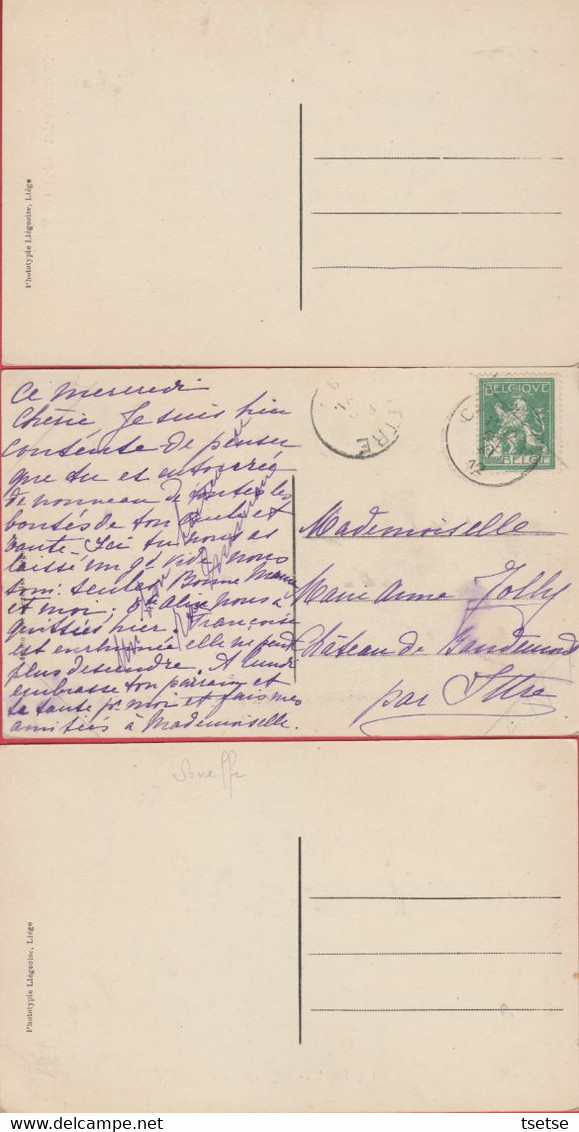 Phototypie Liégeoise, Liége
BELGIQVE
BELGIE
ITTRE
12
Ce mercredi
Chérie Je suis bien
contente de penser
que tu es
de nouveau de toutes les
bontés de ton oncle et
tante. Ici tu nous as
laissé un gd vide. Nous
som. seules Bonne Maman
et moi, Alix nous a
quittées hier. Françoise
est enrhumée elle ne peut
plus descendre. A lundi
embrasse ton parrain et
ta tante pr moi et fais mes
amitiés à Mademoiselle.
Mademoiselle
Marie Anne Jolly
Château de
par Ittre
Soneffe
Phototypie Liégeoise, Liége
tsetse